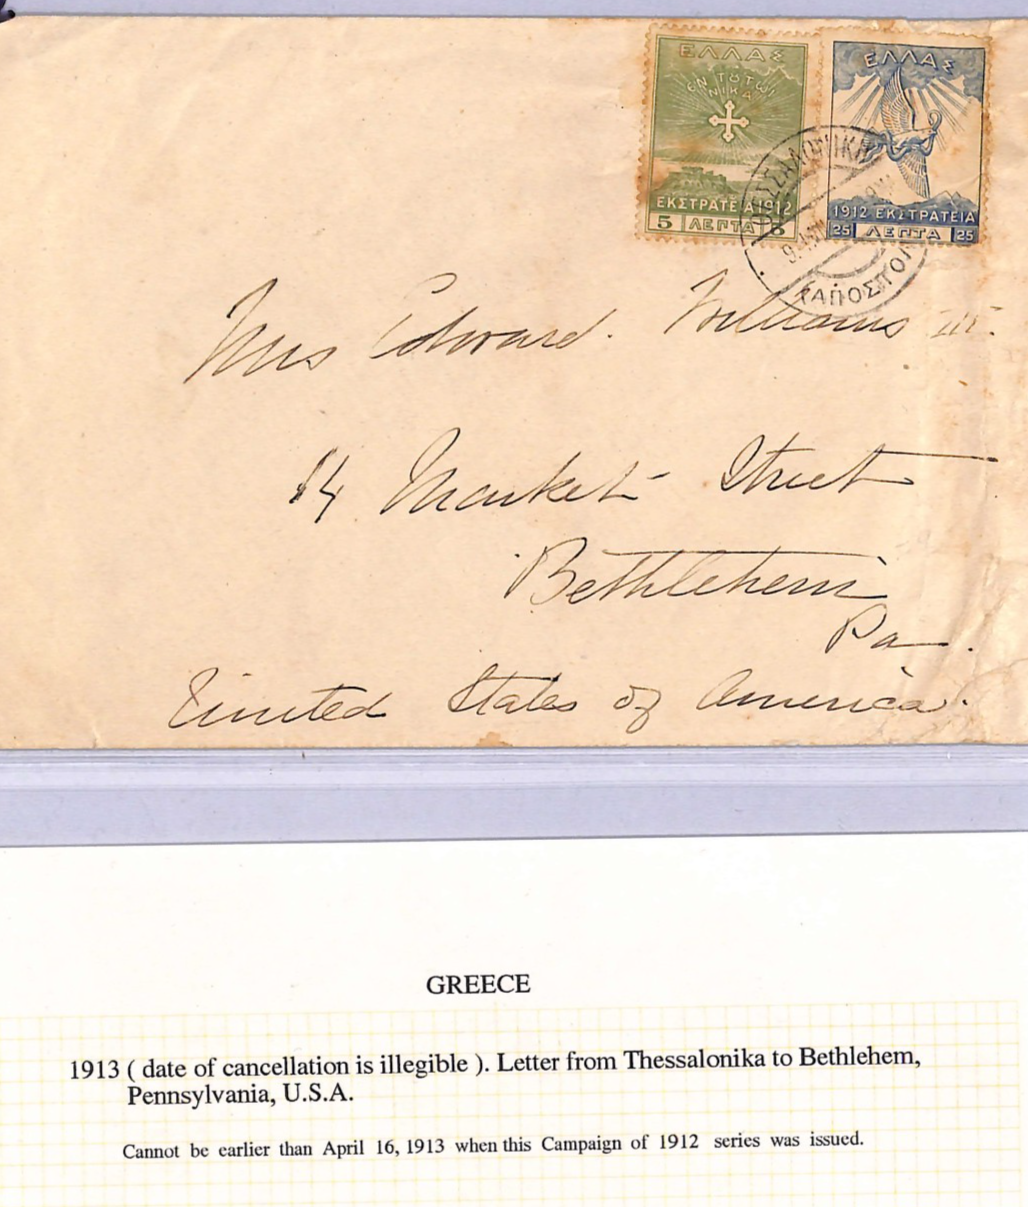 ΕΛΛΑΣ
ΕΝ ΤΟΥΤΩΙ
ΝΙΚΑ
ΕΚΣΤΡΑΤΕΙΑ 1912
5 ΛΕΠΤΑ 5
ΕΛΛΑΣ
1912 ΕΚΣΤΡΑΤΕΙΑ
25 ΛΕΠΤΑ 25
ΘΕΣΣΑΛΟΝΙΚΗ
Mrs Edward. Williams III.
14 Market Street
Bethlehem
Pa.
United States of America.
GREECE
1913 ( date of cancellation is illegible ). Letter from Thessalonika to Bethlehem,
Pennsylvania, U.S.A.
Cannot be earlier than April 16, 1913 when this Campaign of 1912 series was issued.